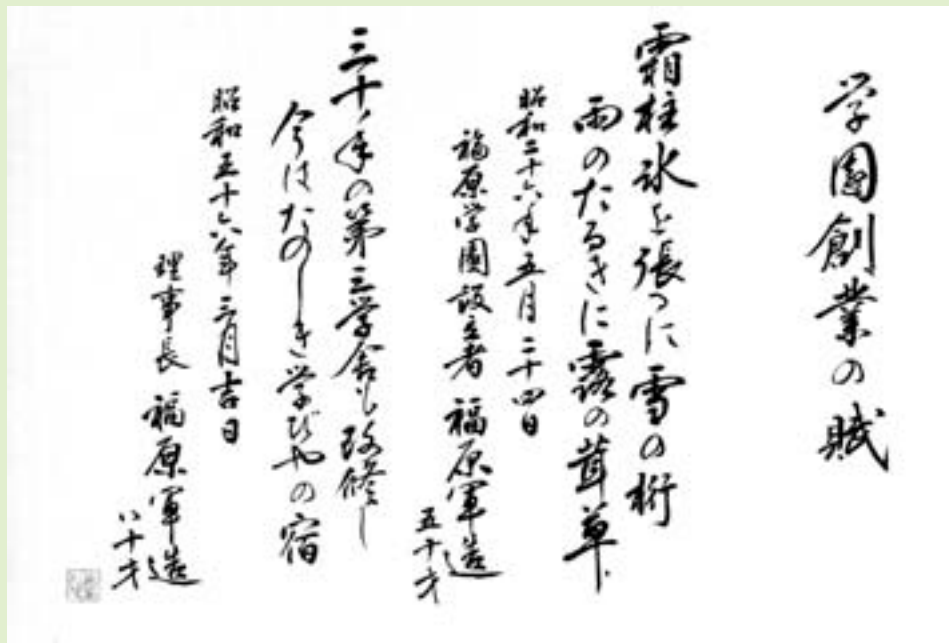 学園創業の賦
霜柱氷を張りに雪の桁
雨のたるきに露の茸草
昭和二十六年五月二十四日
福原学園設立者 福原軍造
五十才
三十年の第三学舎も改修し
今はたのしき学びやの宿
昭和五十六年三月吉日
理事長 福原軍造
八十才